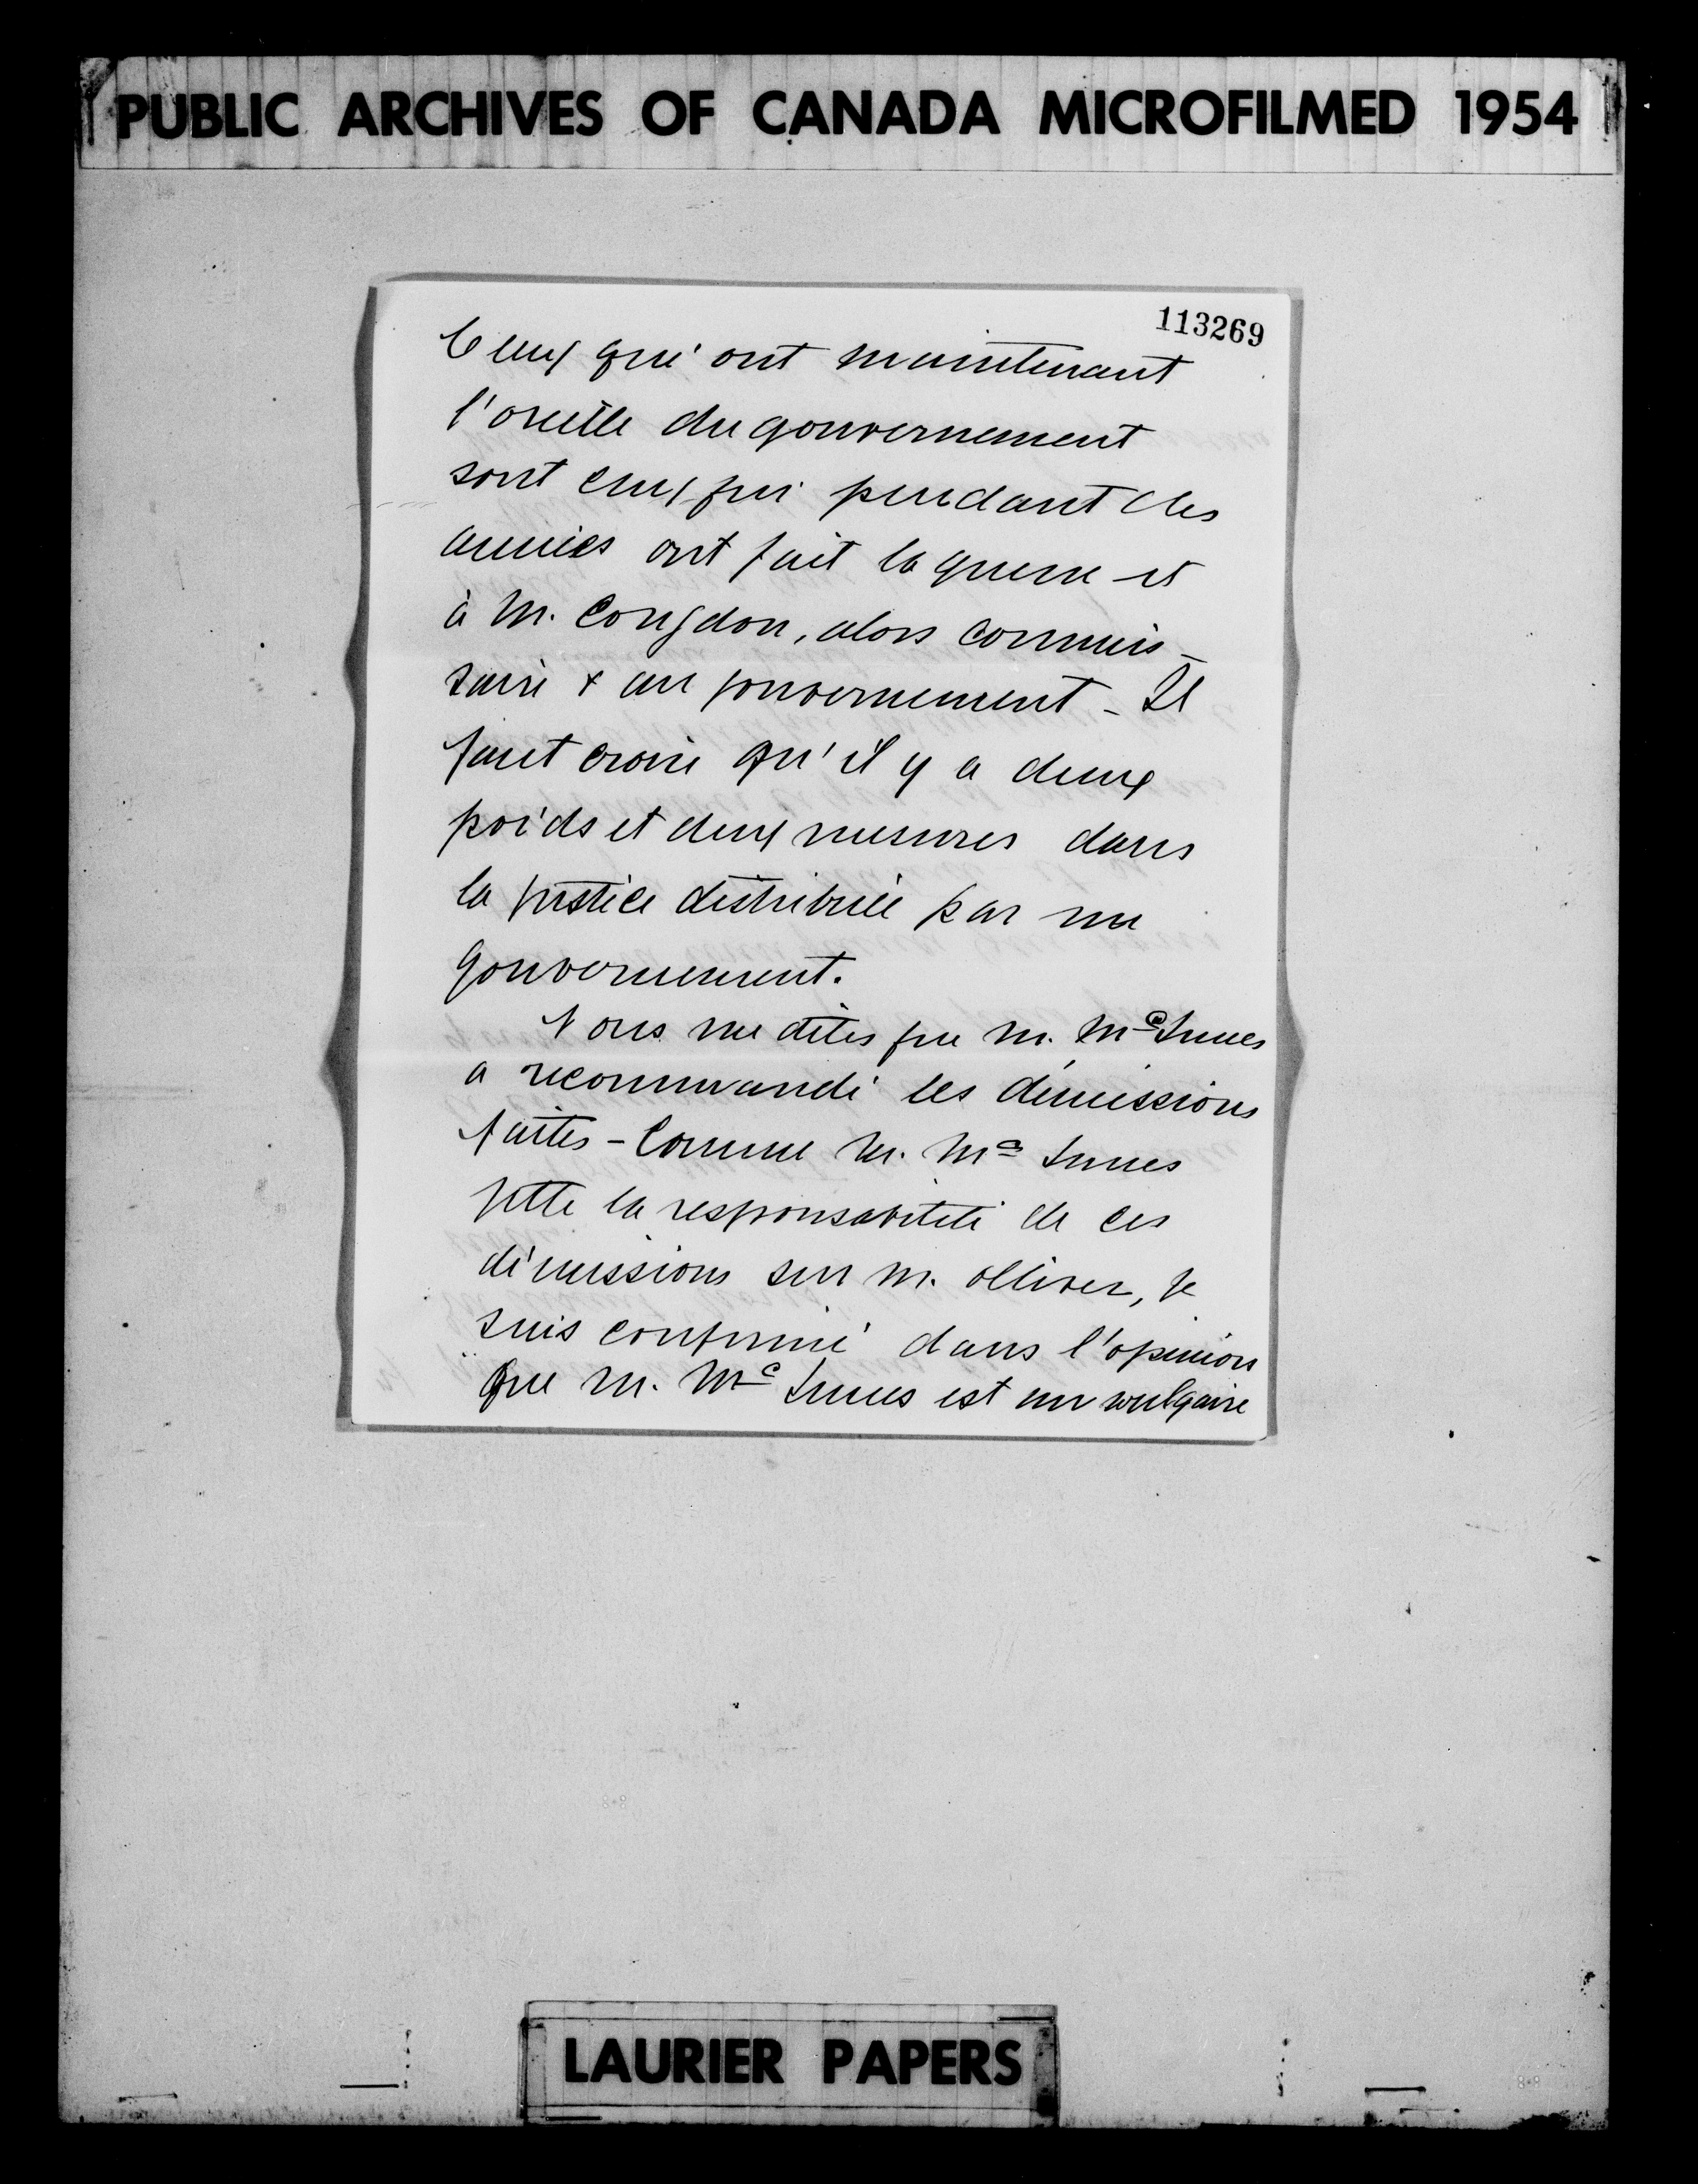 PUBLIC ARCHIVES OF CANADA MICROFILMED 1954
113269
Ceux qui ont maintenant
l'oreille du gouvernement
sont ceux qui pendant des
années ont fait la guerre et
à M. Congdon, alors commis-
saire & au gouvernement - Il
faut croire qu'il y a deux
poids et deux mesures dans
la justice distribuée par un
gouvernement.
Vous me dites que M. McInnes
a recommandé les démissions
faites - Comme M. Mc Innes
jette la responsabilité de ces
démissions sur M. Olliver, je
suis confirmé dans l'opinion
que M. Mc Innes est un vulgaire
LAURIER PAPERS